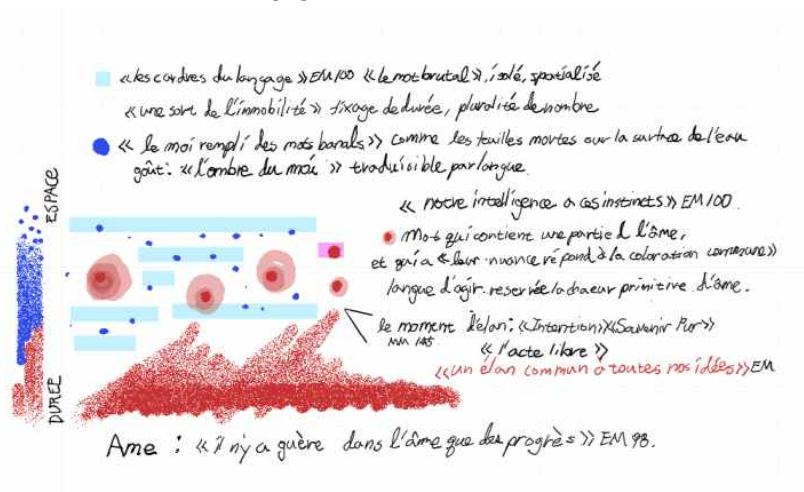 «les cordres du langage» EM100 «le mot brutal», isolé, spatialisé
«une sort de l'immobilité» fixage de durée, pluralité de nombre
«le moi rempli des mots banals» comme les feuilles mortes sur la surface de l'eau
goût: «l'ombre du moi» traduisible par langue.
«notre intelligence a ces instincts.» EM100.
Mot qui contient une partie d l'âme,
et qui a «leur nuance répond à la coloration commune»
langue d'agir. reservée la chaeur primitive d'âme.
le moment d'élan: «Intention» «Souvenir Pur»
MM 145
«l'acte libre»
«un élan commun à toutes nos idées» EM
ESPACE
DUREE
Ame : «il n'y a guère dans l'âme que des progrès» EM 98.